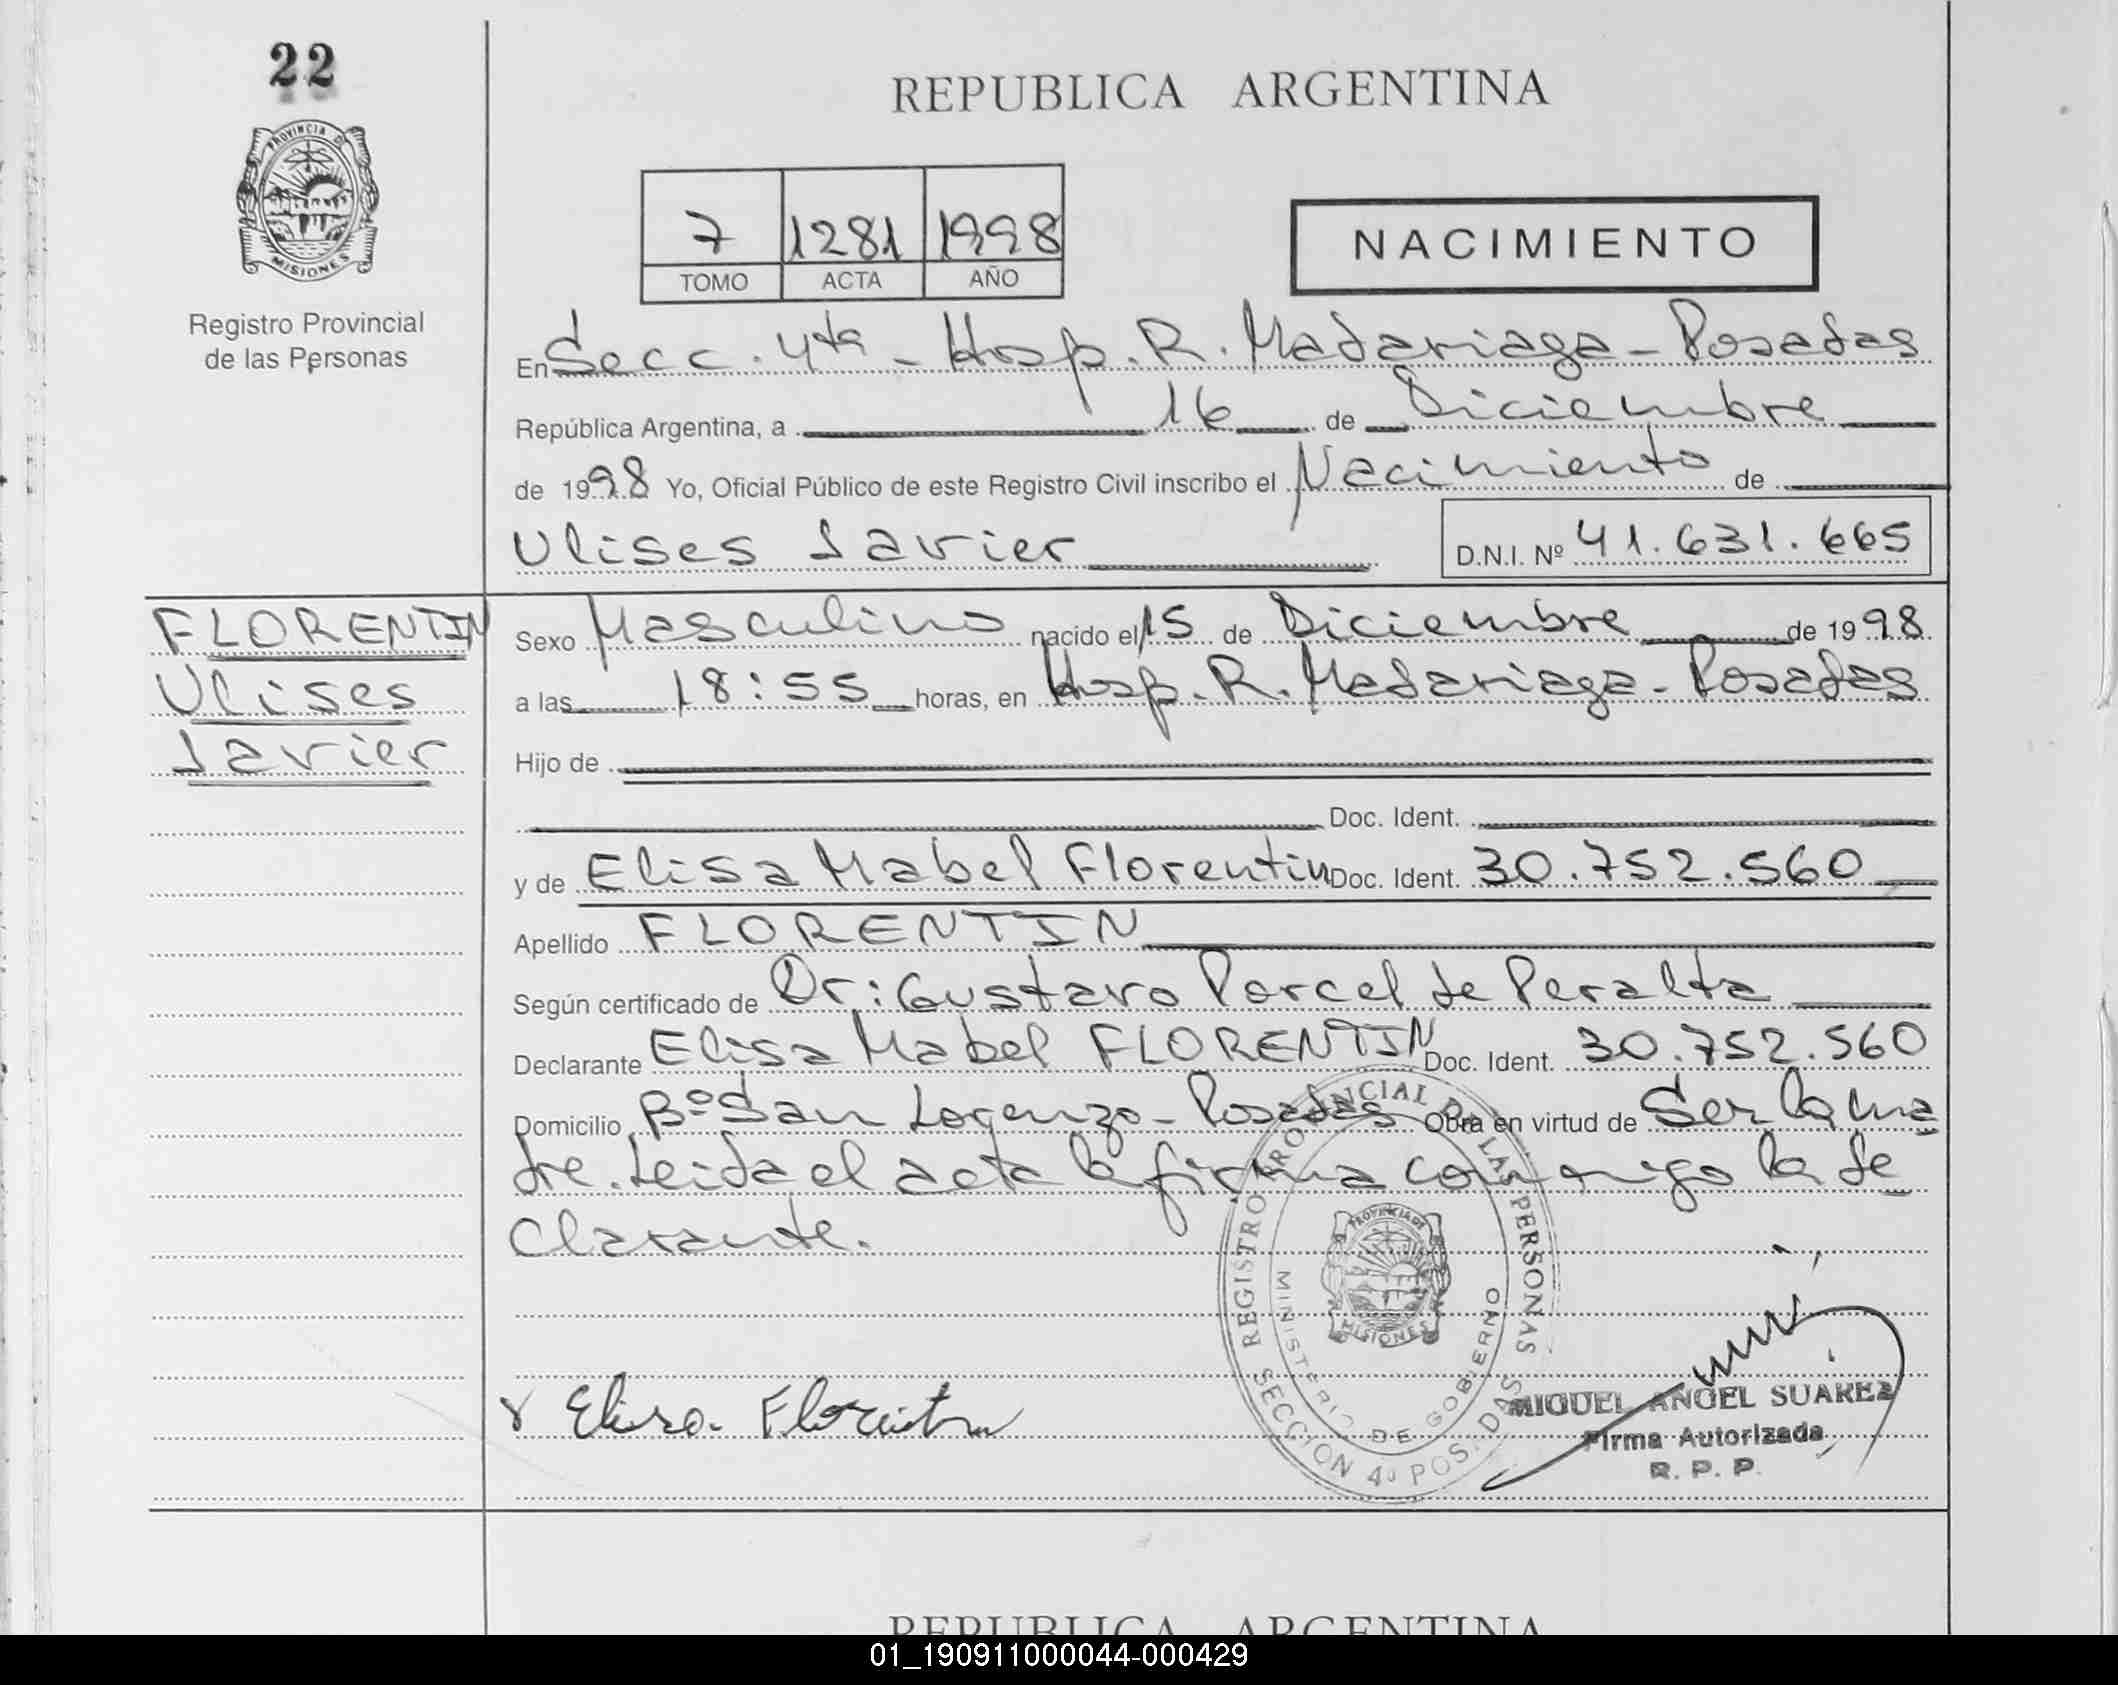 22
PROVINCIA D
MISIONES
Registro Provincial
de las Personas
REPUBLICA ARGENTINA
7 1281 1998
TOMO ACTA AÑO
NACIMIENTO
En Secc. 4ta - Hosp. R. Madariaga - Posadas
República Argentina, a 16 de Diciembre
de 1998 Yo, Oficial Público de este Registro Civil inscribo el Nacimiento de
Ulises Javier D.N.I. Nº 41.631.665
FLORENTIN
Ulises
Javier
Sexo Masculino nacido el 15 de Diciembre de 1998
a las 18:55 horas, en Hosp. R. Madariaga - Posadas
Hijo de
Doc. Ident.
y de Elisa Mabel Florentin Doc. Ident. 30.752.560
Apellido FLORENTIN
Según certificado de Dr: Gustavo Porcel de Peralta
Declarante Elisa Mabel FLORENTIN Doc. Ident. 30.752.560
Domicilio Bº San Lorenzo - Posadas Obra en virtud de Ser la ma
dre. Leida el acta la firma conmigo la de
clarante.
REGISTRO PROVINCIAL DE LAS PERSONAS
SECCION 4ª POSADAS
MINISTERIO DE GOBIERNO
PROVINCIA DE
MISIONES
x Elisa Florentin
MIGUEL ANGEL SUAREZ
Firma Autorizada
R. P. P.
REPUBLICA ARGENTINA
01_190911000044-000429